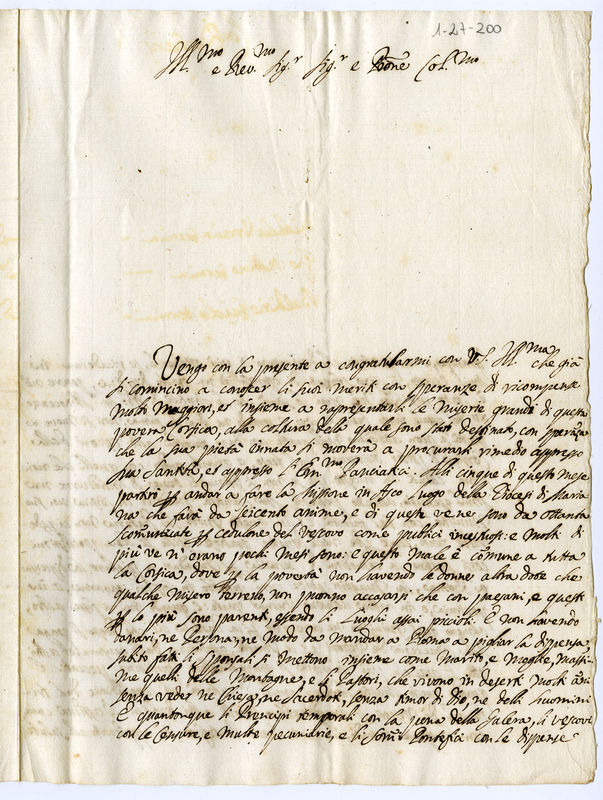 1-27-200
Ill.mo e Rev.mo Sig.r Sig.r e Prone Col.mo
Vengo con la presente a congratularmi con V.S. Ill.ma che già
si comincino a conoscer li suoi meriti con speranze di ricompense
molto maggiori, et insieme a rapresentarli le miserie grandi di questa
povera Corsica, alla coltura della quale sono stato destinato, con speranza
che la sua pietà innata si moverà a procurarli rimedio appresso
Sua Santità, et appresso li Em.mo Panciatici. Alli cinque di questo mese
partirò per andar a fare la Missione in Asco luogo della Diocesi di Maria
na che farà da seicento anime, e di queste ve ne sono da ottanta
scomunicate per cedulone del Vescovo come publici incestuosi: e molti di
più ve n'erano pochi mesi sono: e questo male è comune a tutta
la Corsica, dove per la povertà non havendo le donne altra dote che
qualche misero terreno, non puonno accasarsi che con paesani, e questi
per lo più sono parenti, essendo li luoghi assai piccioli. E non havendo
danari, ne persona, ne modo da mandar a Roma a pigliar la dispensa
subito fatti li sponsali si mettono insieme come marito, e moglie, massi-
me quelli delle Montagne, e li Pastori, che vivono in deserti molti anni
senza veder ne Chiesa, ne Sacerdoti, senza timor di Dio, ne delli huomini
E quantonque li Principi temporali con la pena della Galera, li Vescovi
con le Censure, e multe pecuniarie, e li Som.i Pontefici con le dispense